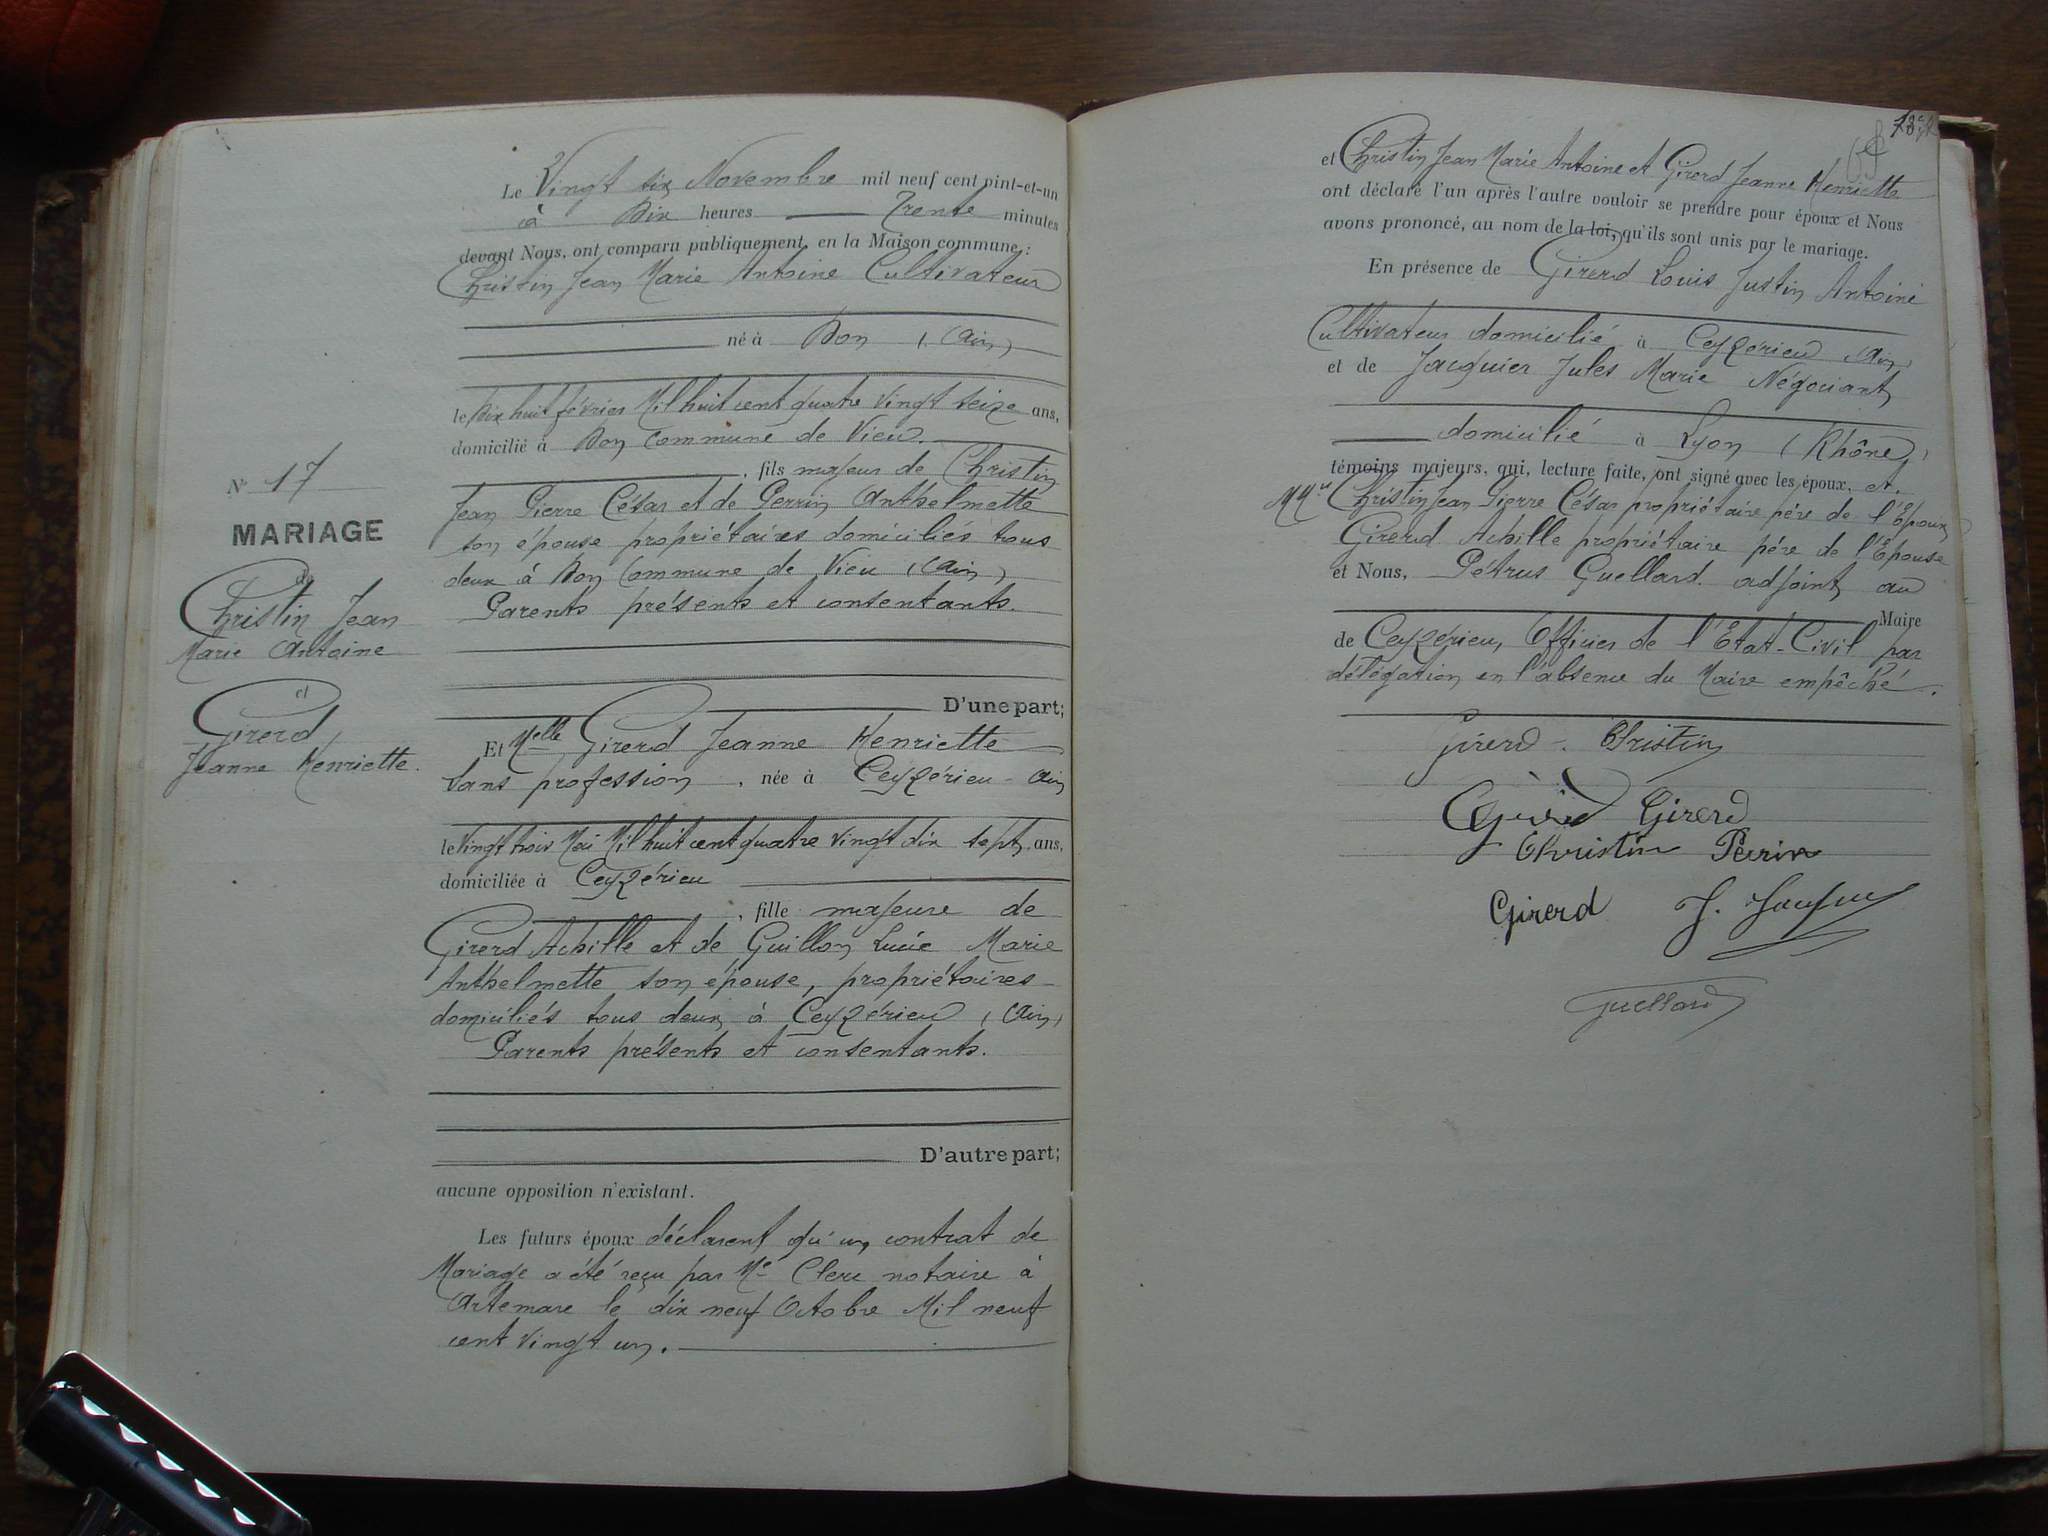 Le Vingt six Novembre mil neuf cent vint-et-un
à Dix heures Trente minutes
devant Nous, ont comparu publiquement en la Maison commune :
Christin Jean Marie Antoine Cultivateur
né à Don (Ain)
le Dix huit février Mil huit cent quatre vingt seize ans,
domicilié à Don Commune de Vieu.
, fils majeur de Christin
Jean Pierre César et de Perrin Anthelmette
son épouse propriétaires domiciliés tous
deux à Don Commune de Vieu (Ain)
Parents présents et consentants.
D'une part;
Et Melle Girerd Jeanne Henriette
sans profession, née à Ceyzérieu - Ain
le Vingt trois Mai Mil huit cent quatre vingt dix sept ans,
domiciliée à Ceyzérieu
, fille majeure de
Girerd Achille et de Guillon Lucie Marie
Anthelmette son épouse, propriétaires
domiciliés tous deux à Ceyzérieu (Ain)
Parents présents et consentants.
D'autre part;
aucune opposition n'existant.
Les futurs époux déclarent qu'un contrat de
Mariage a été reçu par Me Clerc notaire à
Artemare le dix neuf Octobre Mil neuf
cent vingt un.
N° 17
MARIAGE
de
Christin Jean
Marie Antoine
et
Girerd
Jeanne Henriette.
et Christin Jean Marie Antoine et Girerd Jeanne Henriette
ont déclaré l'un après l'autre vouloir se prendre pour époux et Nous
avons prononcé, au nom de la loi, qu'ils sont unis par le mariage.
En présence de Girerd Louis Justin Antoine
Cultivateur domicilié à Ceyzérieu (Ain)
et de Jacquier Jules Marie Négociant
domicilié à Lyon (Rhône)
témoins majeurs, qui, lecture faite, ont signé avec les époux, et.
MMrs Christin Jean Pierre César propriétaire père de l'Epoux
Girerd Achille propriétaire père de l'Epouse
et Nous, Pétrus Guellard adjoint au
Maire
de Ceyzérieu, Officier de l'Etat-Civil par
délégation en l'absence du Maire empêché.
Girerd - Christin
Girerd Girerd
Christin Perrin
Girerd J. Jacquier
Guellard